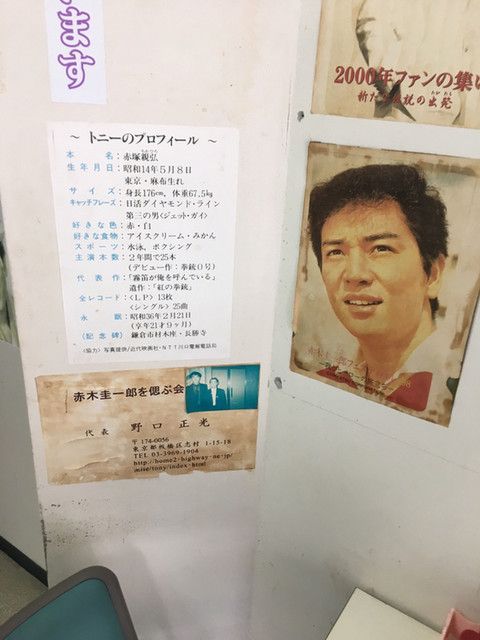 ます
2000年ファンの集い
～ トニーのプロフィール ～
本名：赤塚親弘
生年月日：昭和14年5月8日
東京・麻布生れ
サイズ：身長176cm，体重67.5kg
キャッチフレーズ：日活ダイヤモンド・ライン
第三の男〈ジェット・ガイ〉
好きな色：赤・白
好きな食物：アイスクリーム・みかん
スポーツ：水泳，ボクシング
主演本数：2年間で25本
（デビュー作：拳銃0号）
代表作：「霧笛が俺を呼んでいる」
遺作：「紅の拳銃」
全レコード：＜LP＞13枚
＜シングル＞25曲
永眠：昭和36年2月21日
（享年21才9ヶ月）
〈記念碑〉：鎌倉市材木座・長勝寺
〈協力〉写真提供/近代映画社・NTT
赤木圭一郎を偲ぶ会
代表 野口正光
〒174-0056
東京都板橋区志村 1-15-18
TEL 03-3969-1904
http://home2.highway.ne.jp/
miss/tony/index.html